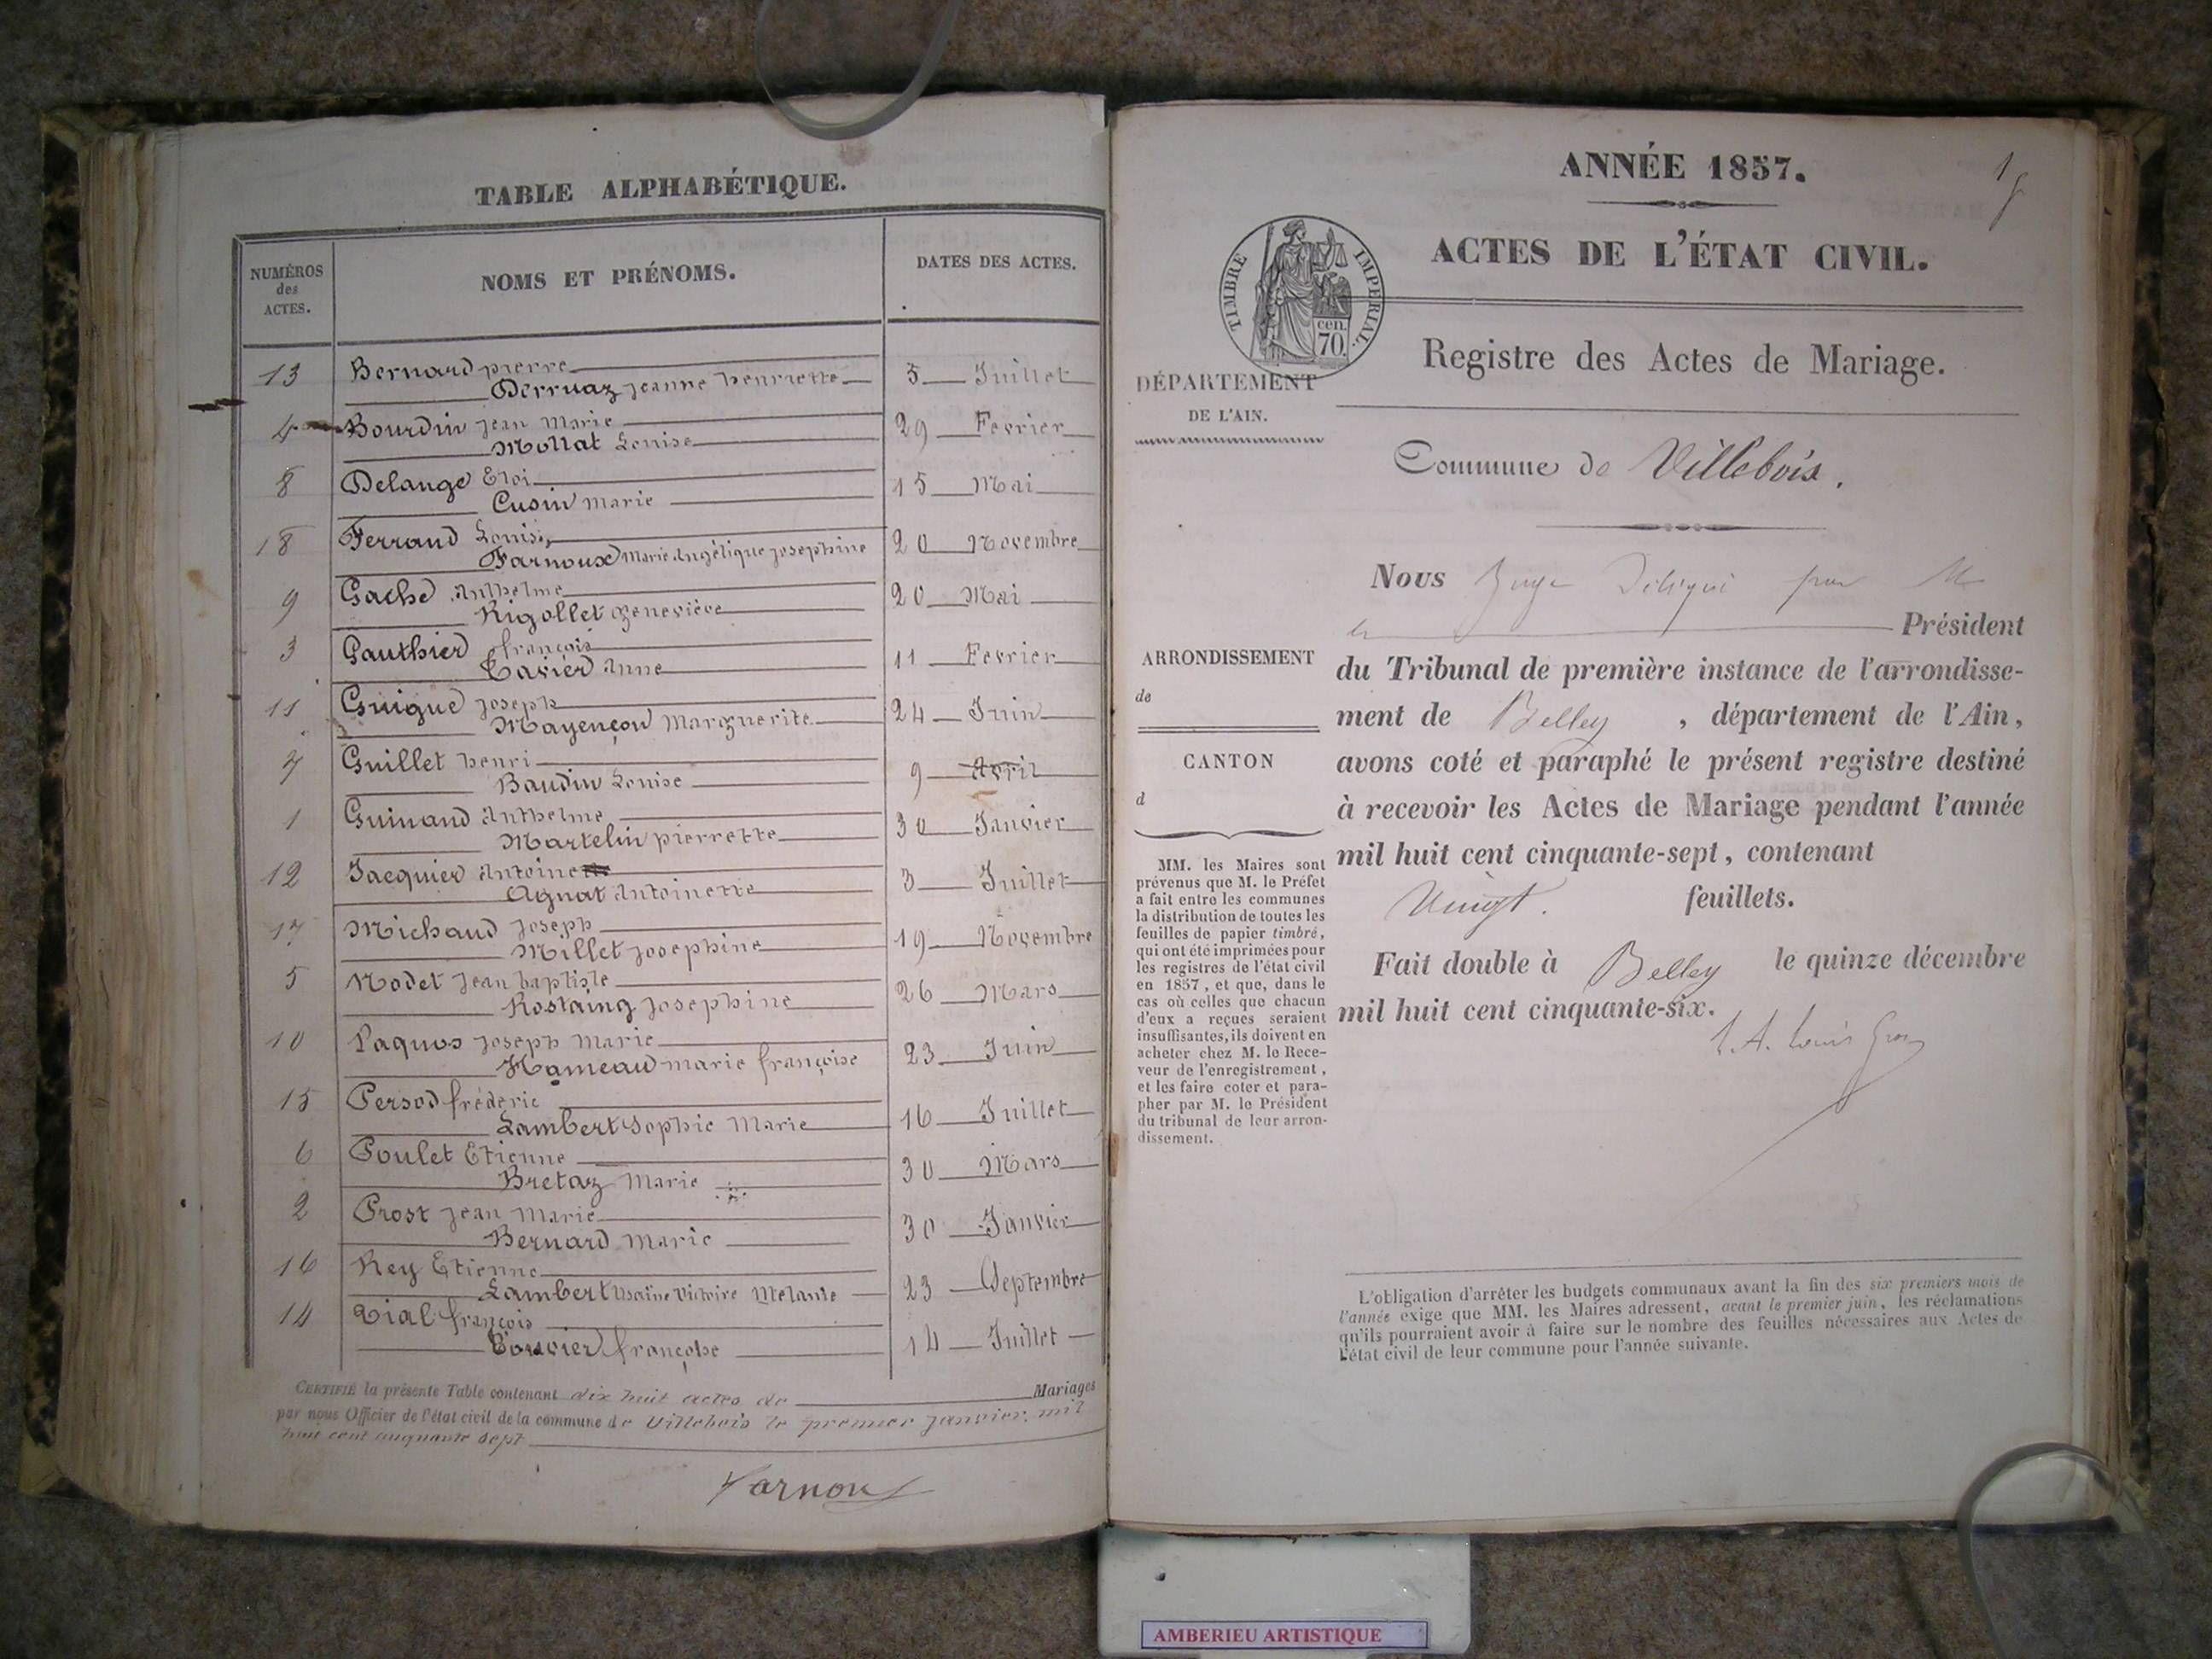 TABLE ALPHABÉTIQUE.
NUMÉROS
des
ACTES.
NOMS ET PRÉNOMS.
DATES DES ACTES.
13 Bernard pierre
Derruaz jeanne henriette 5 Juillet
4 Bourdin jean Marie
Mollat Louise 29 Fevrier
8 Delange Eloi
Cusin marie 15 Mai
18 Ferrand Louis
Farnoux Marie Angélique josephine 20 Novembre
9 Gache Anthelme
Rigollet geneviève 20 Mai
3 Gauthier françois
Anne 11 Fevrier
11 Guigue joseph
Mayençon Marguerite 24 Juin
7 Guillet henri
Baudin Louise 9 Avril
1 Guinand Anthelme
Martelin pierrette 30 Janvier
12 Jacquier Antoine
Agnat Antoinette 3 Juillet
17 Michaud joseph
Millet josephine 19 Novembre
5 Nodet jean baptiste
Rostaing josephine 26 Mars
10 Paquos joseph marie
Hameau marie françoise 23 Juin
15 Persod fréderic
Lambert Sophie Marie 16 Juillet
6 Poulet Etienne
Bretaz Marie 30 Mars
2 Prost jean Marie
Bernard Marie 30 Janvier
16 Rey Etienne
Lambert Victoire Melanie 23 Septembre
14 Vial françois
Bouvier françoise 14 Juillet
CERTIFIÉ la présente Table contenant dix huit actes de Mariages
par nous Officier de l'état civil de la commune de Villebois le premier janvier, mil
huit cent cinquante sept
Farnoux
ANNÉE 1857.
1
ACTES DE L'ÉTAT CIVIL.
TIMBRE IMPÉRIAL.
cen.
70.
Registre des Actes de Mariage.
DÉPARTEMENT
DE L'AIN.
Commune de Villebois.
Nous Juge Délégué par M
le Président
ARRONDISSEMENT
de
CANTON
d
MM. les Maires sont
prévenus que M. le Préfet
a fait entre les communes
la distribution de toutes les
feuilles de papier timbré,
qui ont été imprimées pour
les registres de l'état civil
en 1857, et que, dans le
cas où celles que chacun
d'eux a reçues seraient
insuffisantes, ils doivent en
acheter chez M. le Rece-
veur de l'enregistrement,
et les faire coter et para-
pher par M. le Président
du tribunal de leur arron-
dissement.
du Tribunal de première instance de l'arrondisse-
ment de Belley, département de l'Ain,
avons coté et paraphé le présent registre destiné
à recevoir les Actes de Mariage pendant l'année
mil huit cent cinquante-sept, contenant
Vingt. feuillets.
Fait double à Belley le quinze décembre
mil huit cent cinquante-six.
Louis
L'obligation d'arrêter les budgets communaux avant la fin des six premiers mois de
l'année exige que MM. les Maires adressent, avant le premier juin, les réclamations
qu'ils pourraient avoir à faire sur le nombre des feuilles nécessaires aux Actes de
l'état civil de leur commune pour l'année suivante.
AMBERIEU ARTISTIQUE